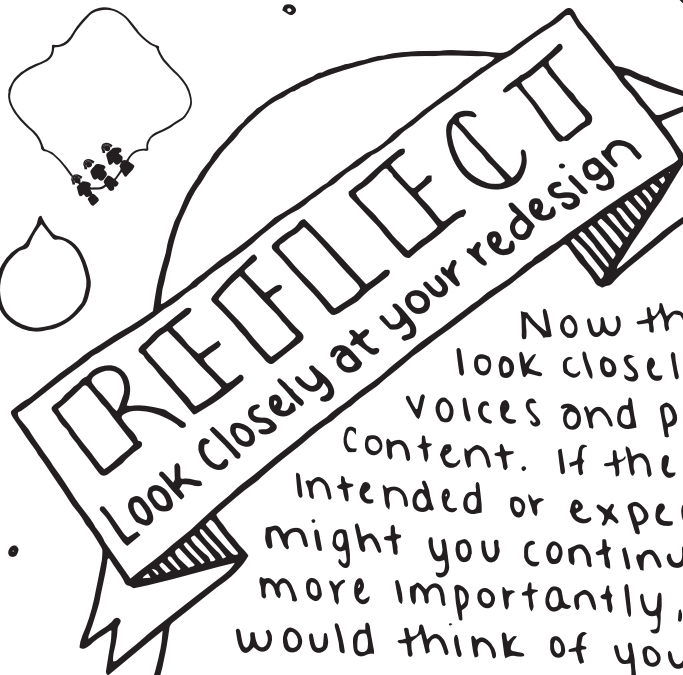 REFLECT
Look closely at your redesign
Now th
look closel
voices and p
content. If the
intended or expe
might you continu
more importantly,
would think of you